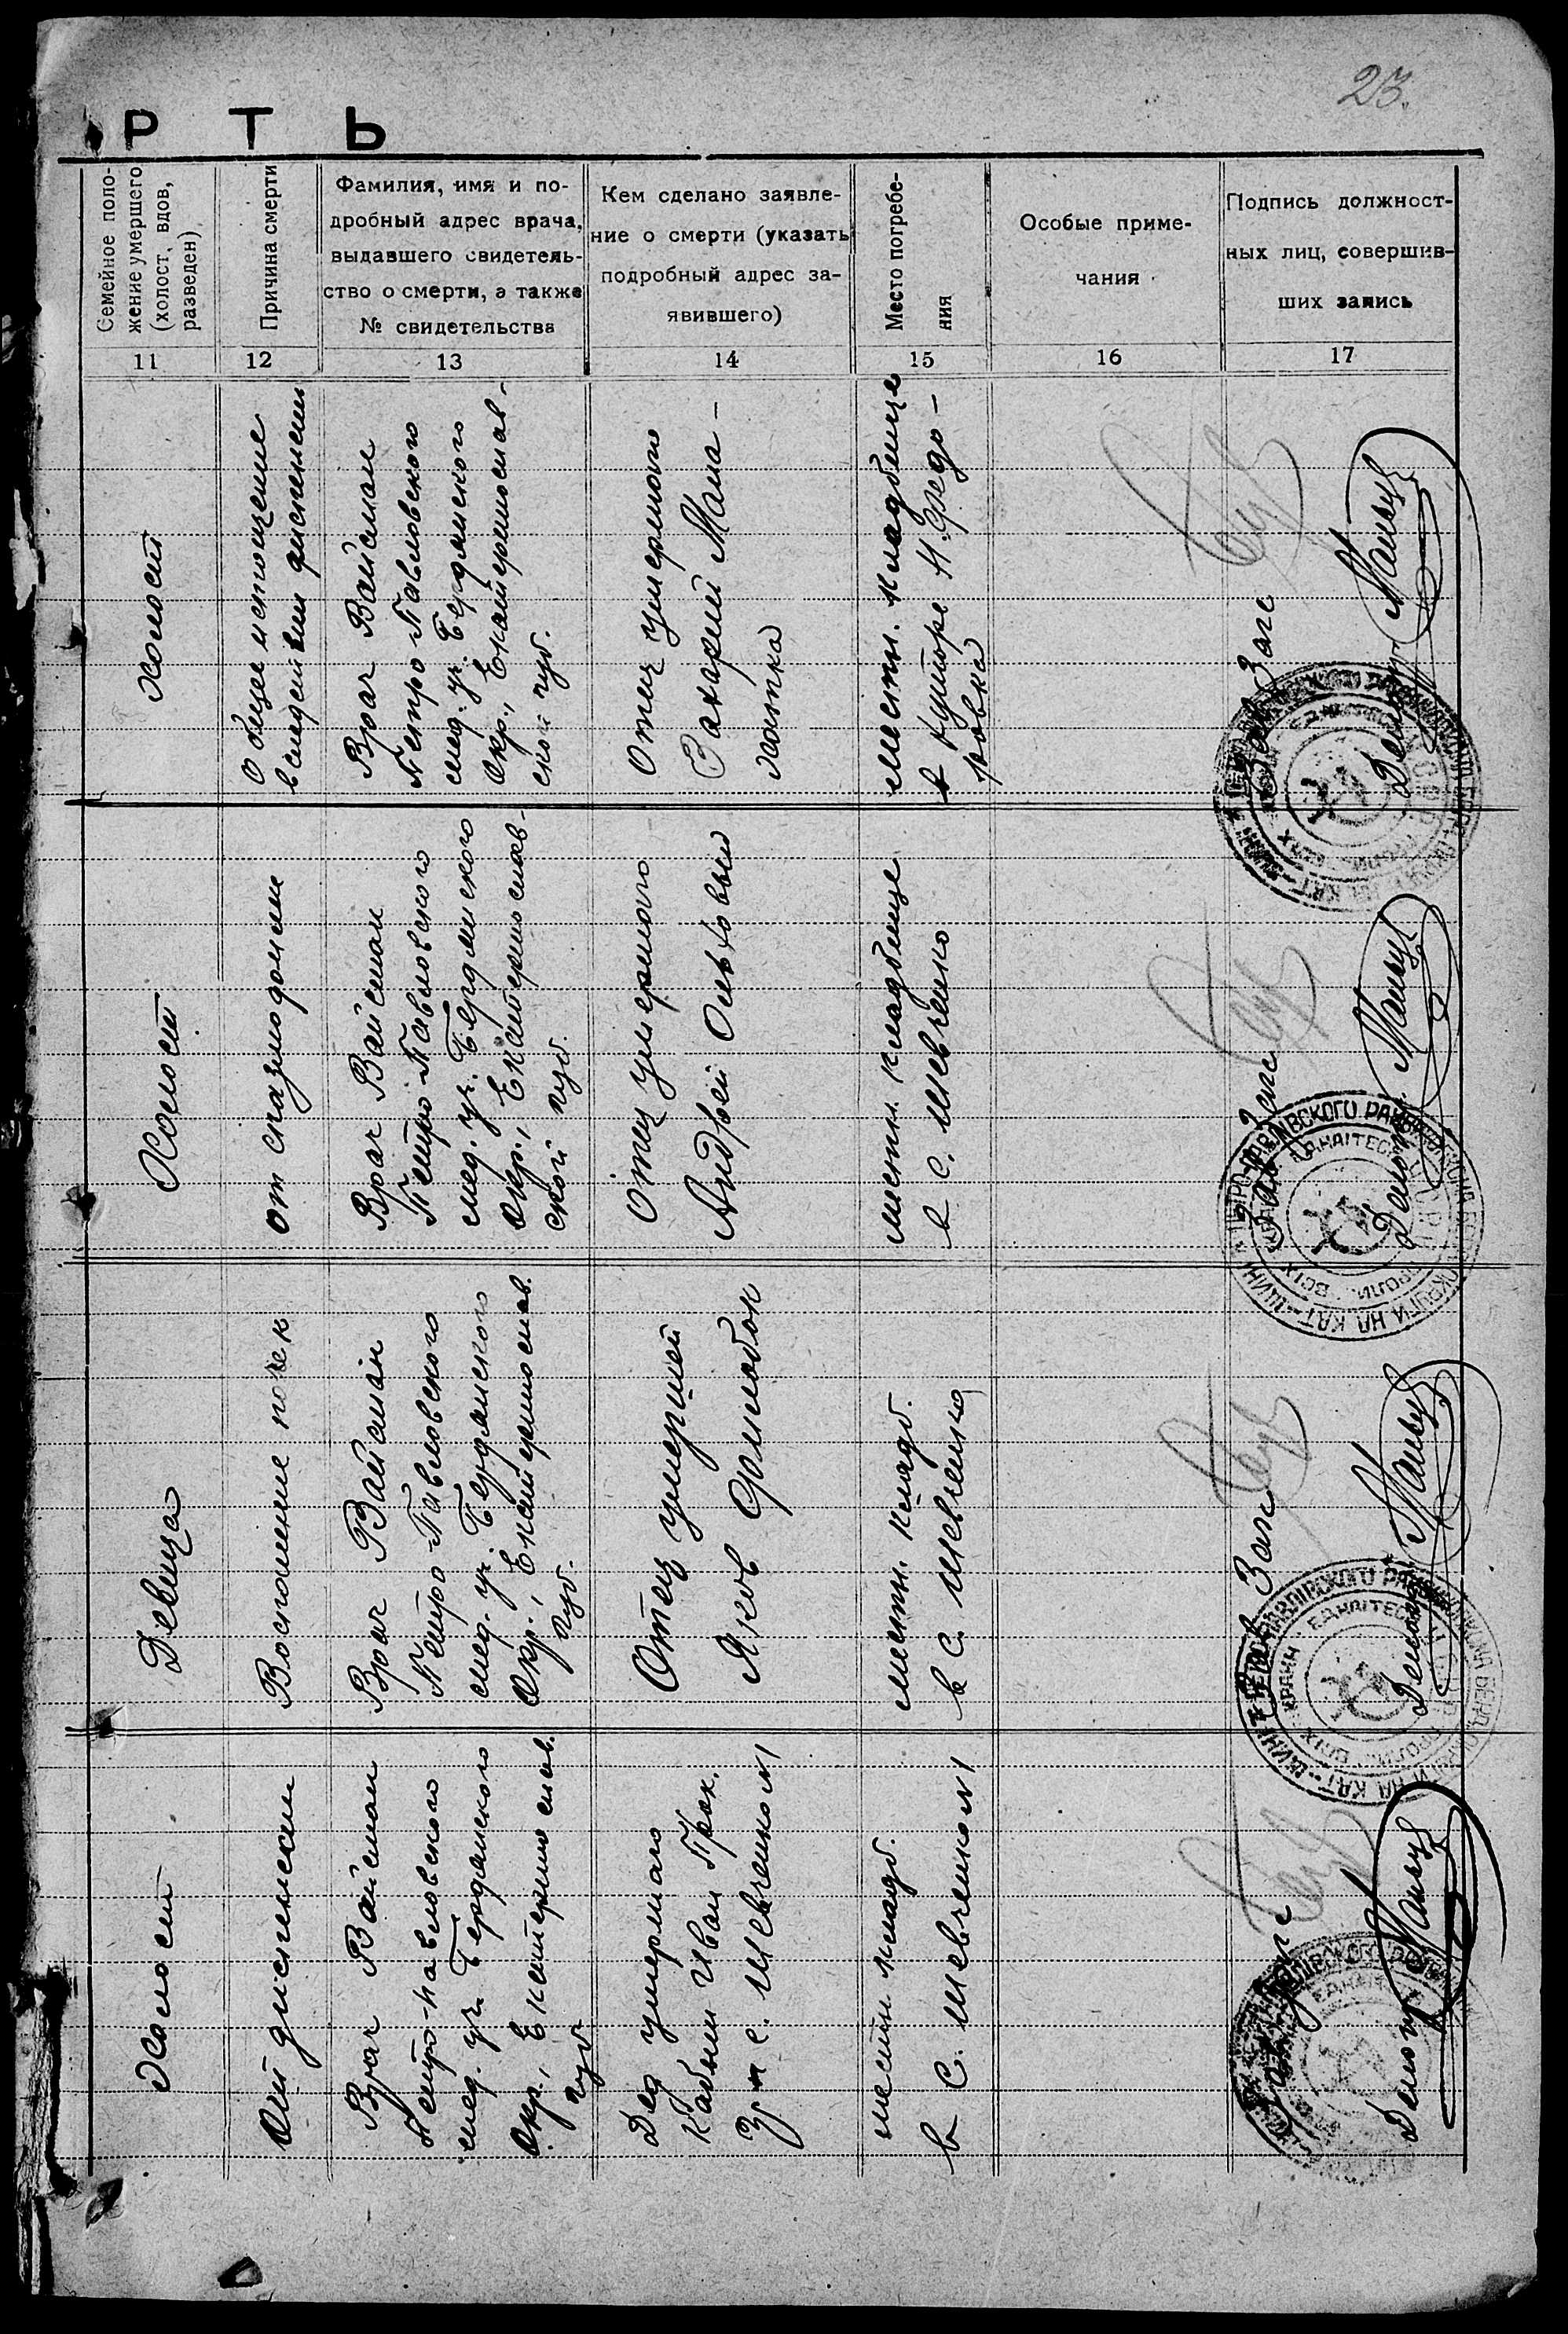 23.
РТЬ
Семейное поло-
жение умершего
(холост, вдов,
разведен)
Причина смерти
Фамилия, имя и по-
дробный адрес врача,
выдавшего свидетель-
ство о смерти, а также
№ свидетельства
Кем сделано заявле-
ние о смерти (указать
подробный адрес за-
явившего)
Место погребе-
ния
Особые приме-
чания
Подпись должност-
ных лиц, совершив-
ших запись
11
12
13
14
15
16
17
Холост
Общее истощение
вследствии
Врач Вайсман
Петро-Павловского
мед. уч. Бердянского
Окр., Екатеринослав-
ской губ.
Отец умершего
Захарий
местн. кладбище
в хуторе Н. Федо-
ровка
Зав Загс
Холост
от
Врач Вайсман
Петро-Павловского
мед. уч. Бердянского
Окр., Екатеринослав-
ской губ.
Отец умершего
Андрей
местн. кладбище
в с. Шевченко
Зав Загс
Девица
Восполение почек
Врач Вайсман
Петро-Павловского
мед. уч. Бердянского
Окр., Екатеринослав.
губ.
Отец умершей
Яков
местн. кладб.
в с. Шевченко
Зав Загс
Холост
От
Врач Вайсман
Петро-Павловского
мед. уч. Бердянского
Окр., Екатеринослав.
губ.
Дед умершаго
Иван
с. Шевченко №1
местн. кладб.
в с. Шевченко №1